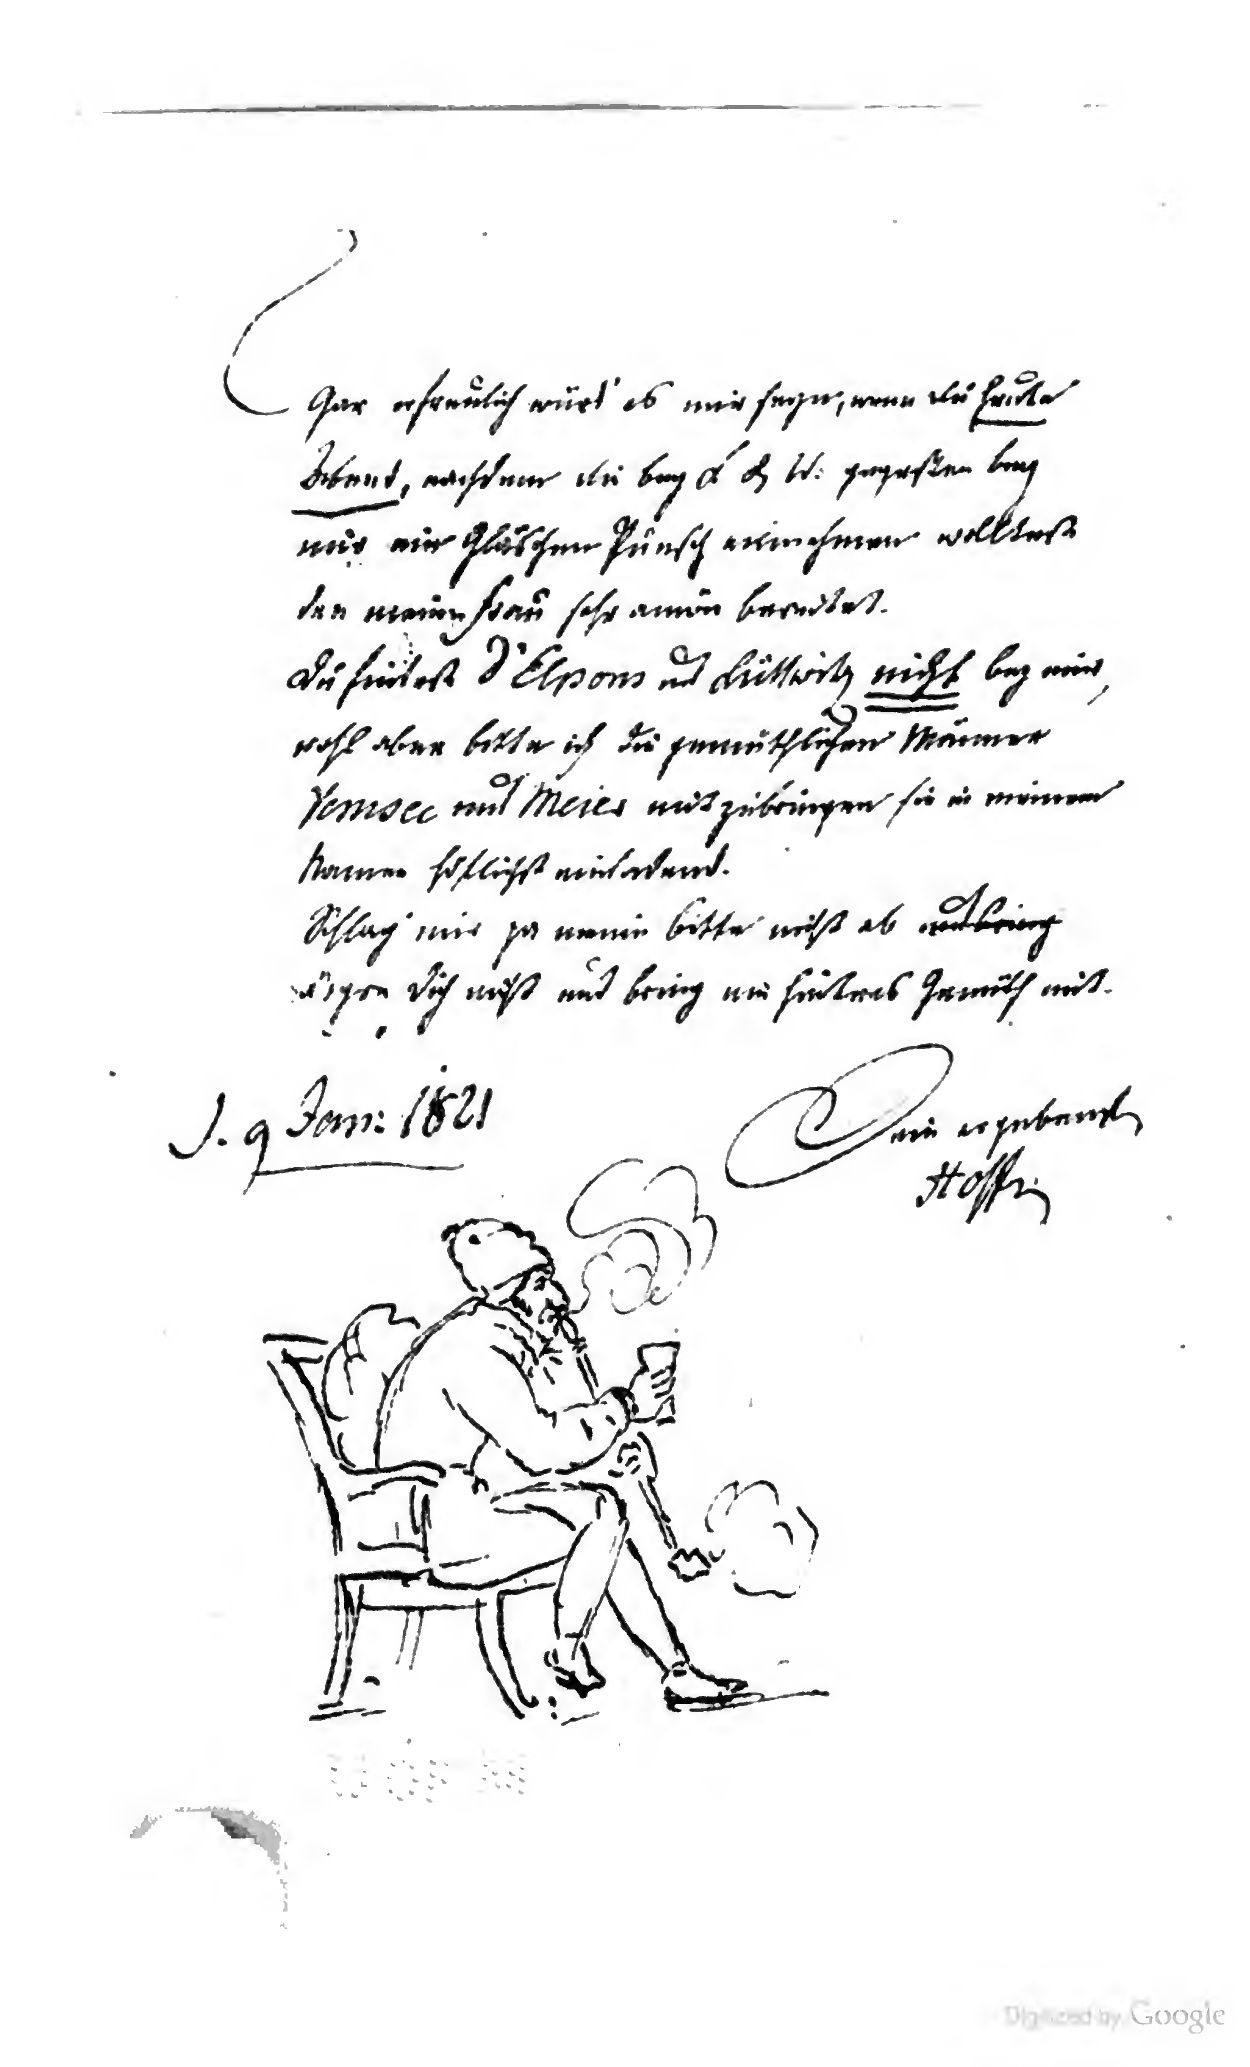 Gar erfreulich würd' es mir seyn, wenn du heute
Abend, nachdem du bey L & W: gegessen bey
mir ein Gläschen Punsch einnehmen wolltest
den meine Frau sehr amön bereitet.
Du findest d'Elpons und Lüttwitz nicht bey mir,
wohl aber bitte ich die gemüthlichen Männer
und Meier mitzubringen sie in meinem
Namen höflichst einladend.
Schlag' mir ja meine Bitte nicht ab und bring
ärgre Dich nicht und bring ein heitres Gemüth mit.
d. 9 Jan: 1821
Dein ergebenst
Hoffm
Digitized by Google